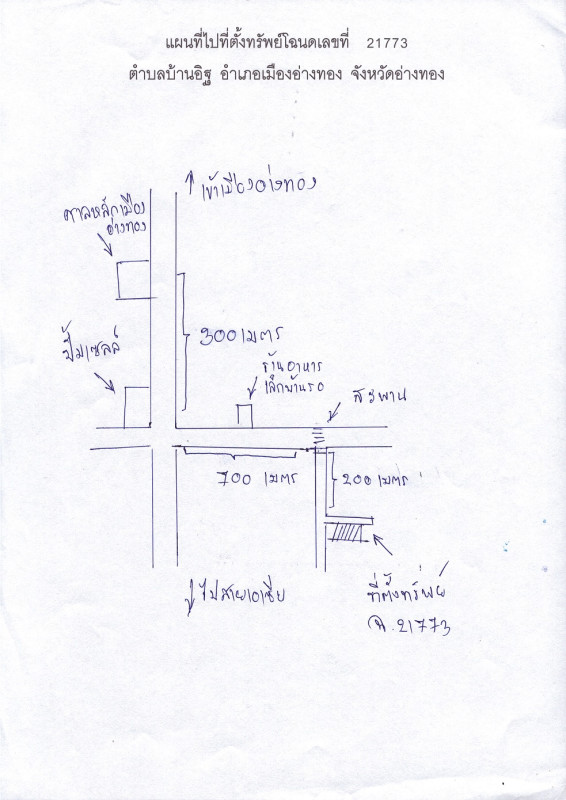 แผนที่ไปที่ตั้งทรัพย์โฉนดเลขที่ 21773
ตำบลบ้านอิฐ อำเภอเมืองอ่างทอง จังหวัดอ่างทอง
เข้าเมืองอ่างทอง
ศาลหลักเมือง
อ่างทอง
300 เมตร
ปั๊มเชลล์
ร้านอาหาร
เล็กบ้านรอ
สะพาน
700 เมตร
200 เมตร
ไปสายเอเซีย
ที่ตั้งทรัพย์
ฉ.21773